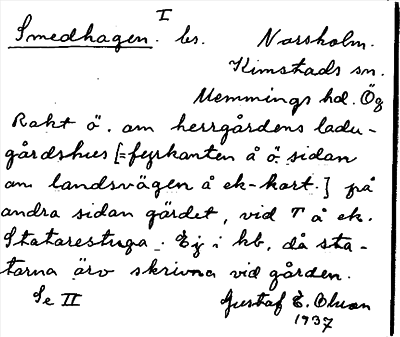 I
Smedhagen. bs. Norsholm.
Kimstads sn.
Memmings hd. Ög
Rakt ö. om herrgårdens ladu-
gårdshus [=fyrkanten å ö. sidan
om landsvägen å ek-kart.] på
andra sidan gärdet, vid T å ek.
Statarestuga. Ej i kb, då sta-
tarna äro skrivna vid gården.
Se II Gustaf E. Olson
1937